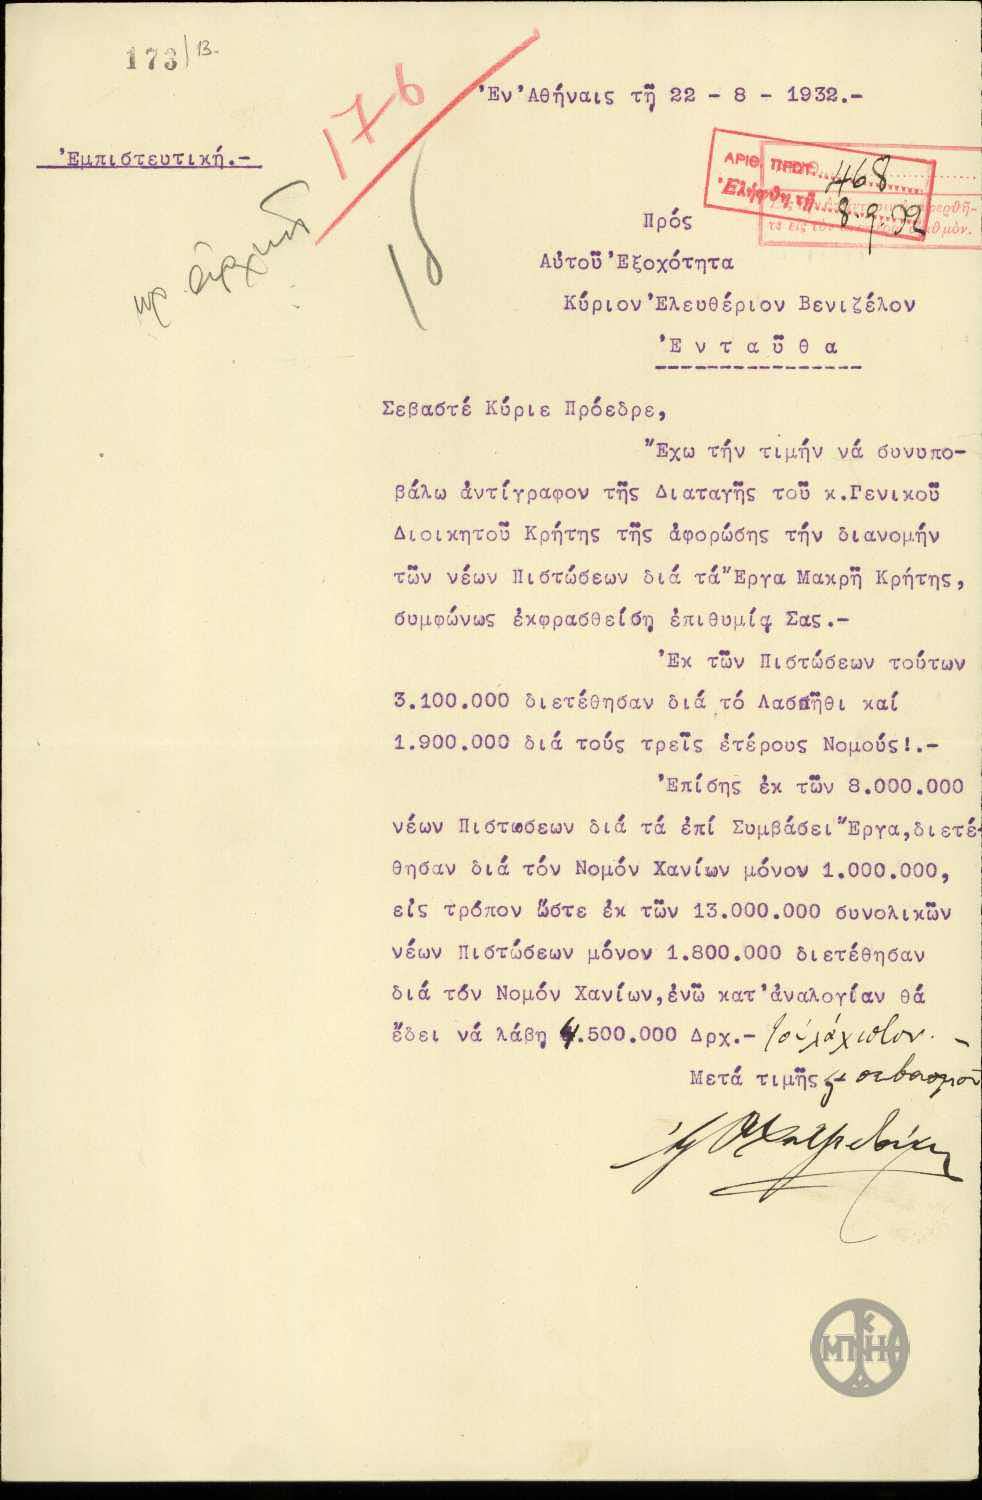 173/13.
176
Ἐν Ἀθήναις τῇ 22 - 8 - 1932.-
Ἐμπιστευτική.-
ΑΡΙΘ. ΠΡΩΤ. 468
Ἐλήφθη τῇ 8.9.32
Πρός
Αὐτοῦ Ἐξοχότητα
Κύριον Ἐλευθέριον Βενιζέλον
Ἐ ν τ α ῦ θ α
Σεβαστέ Κύριε Πρόεδρε,
Ἔχω τήν τιμήν νά συνυπο-
βάλω ἀντίγραφον τῆς Διαταγῆς τοῦ κ.Γενικοῦ
Διοικητοῦ Κρήτης τῆς ἀφορώσης τήν διανομήν
τῶν νέων Πιστώσεων διά τά Ἔργα Μακρῆ Κρήτης,
συμφώνως ἐκφρασθείσῃ ἐπιθυμίᾳ Σας.-
Ἐκ τῶν Πιστώσεων τούτων
3.100.000 διετέθησαν διά τό Λασῆθι καί
1.900.000 διά τούς τρεῖς ἑτέρους Νομούς!.-
Ἐπίσης ἐκ τῶν 8.000.000
νέων Πιστωσεων διά τά ἐπί Συμβάσει Ἔργα,διετέ-
θησαν διά τόν Νομόν Χανίων μόνον 1.000.000,
εἰς τρόπον ὥστε ἐκ τῶν 13.000.000 συνολικῶν
νέων Πιστώσεων μόνον 1.800.000 διετέθησαν
διά τόν Νομόν Χανίων,ἐνῶ κατ'ἀναλογίαν θά
ἔδει νά λάβῃ 4.500.000 Δρχ.- τοὐλάχιστον. -
Μετά τιμῆς & σεβασμοῦ
ΜΠΝΗΘ